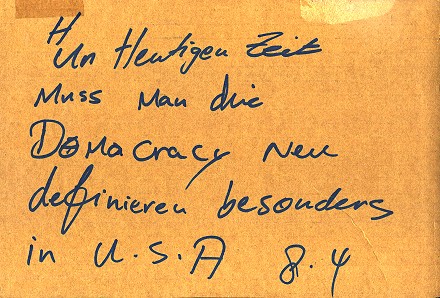 H
Un Heutigen Zeit
Muss Man die
Domacracy neu
definieren besonders
in U.S.A 8.4